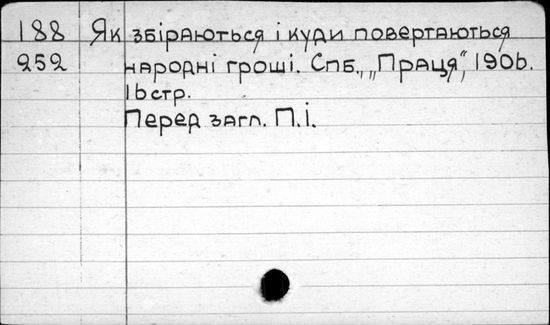 188 Як збіраються і куди повертаються
252 народні гроші. Спб., „Праця", 1906.
16 стр.
Перед загл. П.і.